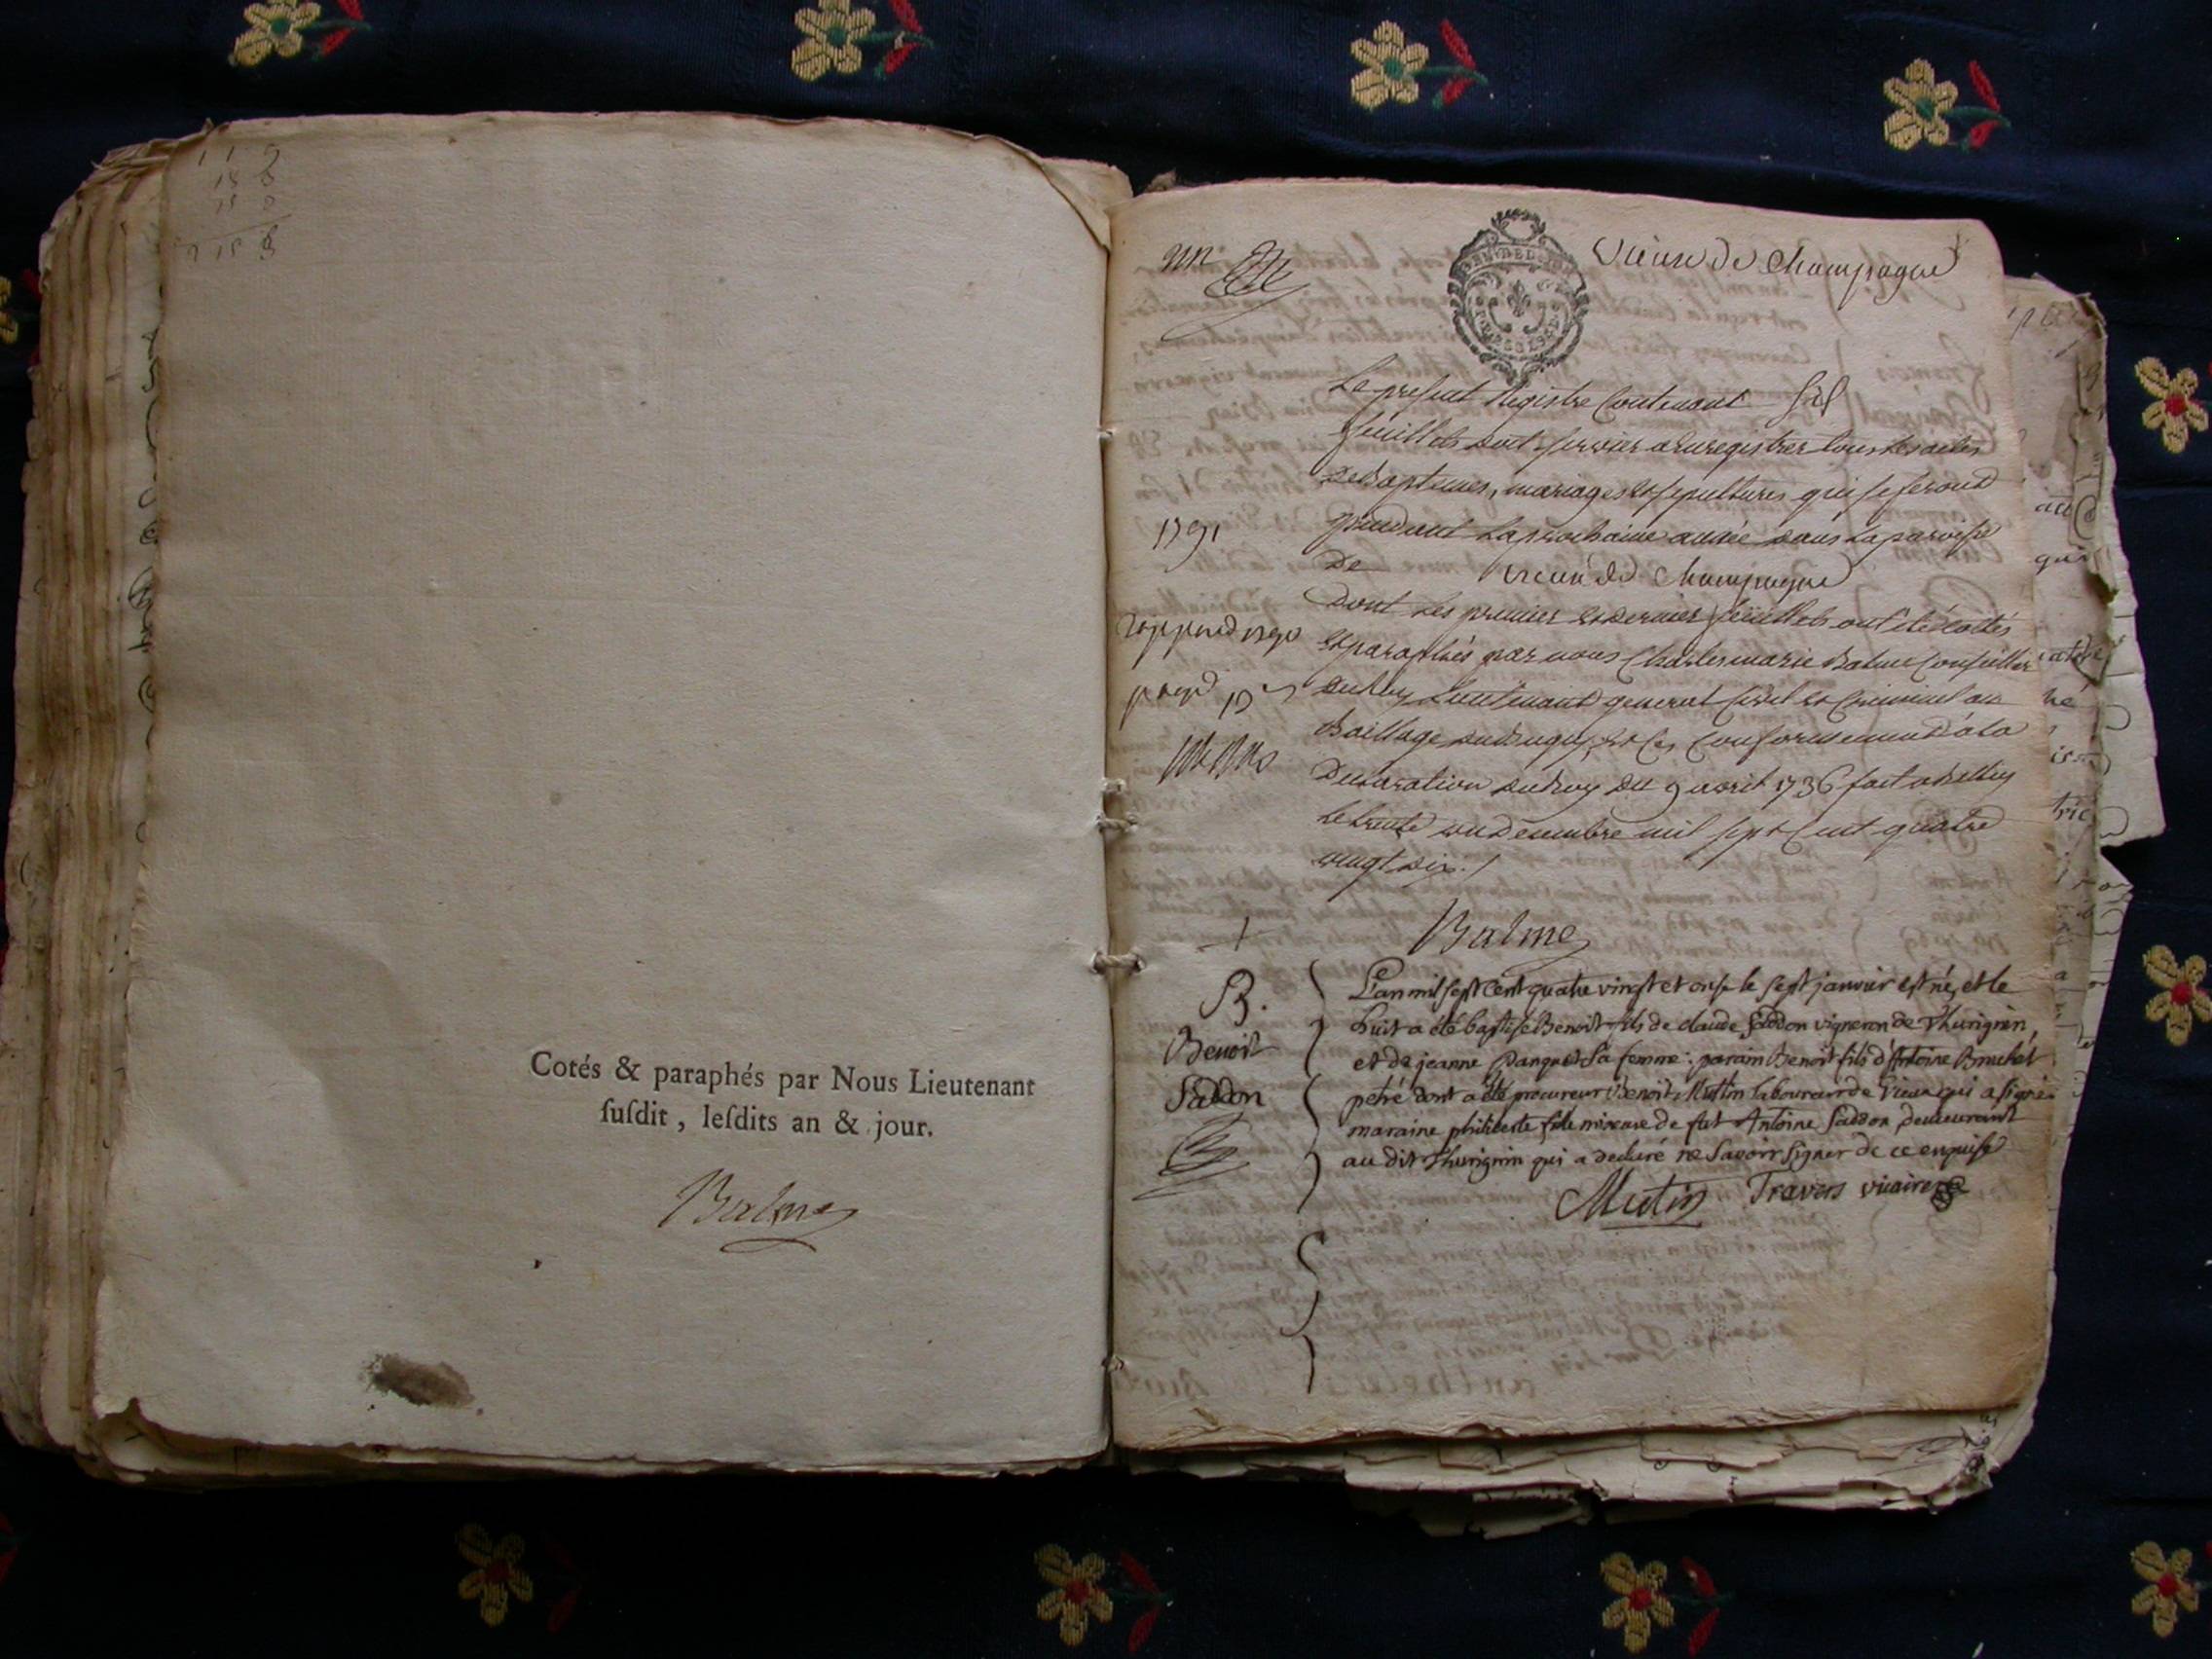 Cotés & paraphés par Nous Lieutenant
ſuſdit, leſdits an & jour.
Balme
un
Vieux de Champagne
Le present Registre Contenant six
feuillets doit servir a Enregistrer tous les actes
de Baptemes, mariages et sepultures qui se feront
pendant La prochaine année dans La paroisse
De Vieu de Champagne
Dont Les premier et dernier feuillets ont été cottés
et paraphés par nous Charles marie Balme Conseiller
du Roy Lieutenant general Civil et Criminel au
Bailliage du Bugey, et ce Conformement a la
Declaration du Roy du 9 avril 1736 fait a Belley
le trente decembre mil sept Cent quatre
vingt dix ./
1791
Balme
B.
Benoit
Saddon
L'an mil sept cent quatre vingt et onze le sept janvier est né, et le
huit a été baptisé Benoit fils de claude Saddon vigneron de Thurignin,
et de jeanne Panquet sa femme: parain Benoit fils d'Antoine Bruchet
petré dont a été procureur Benoit Muttin laboureur de Vieux qui a signé
maraine philiberte fille mineure de fut Antoine Saddon demeurant
au dit Thurignin qui a declaré ne savoir signer de ce enquise
Mutin Travers vicaire